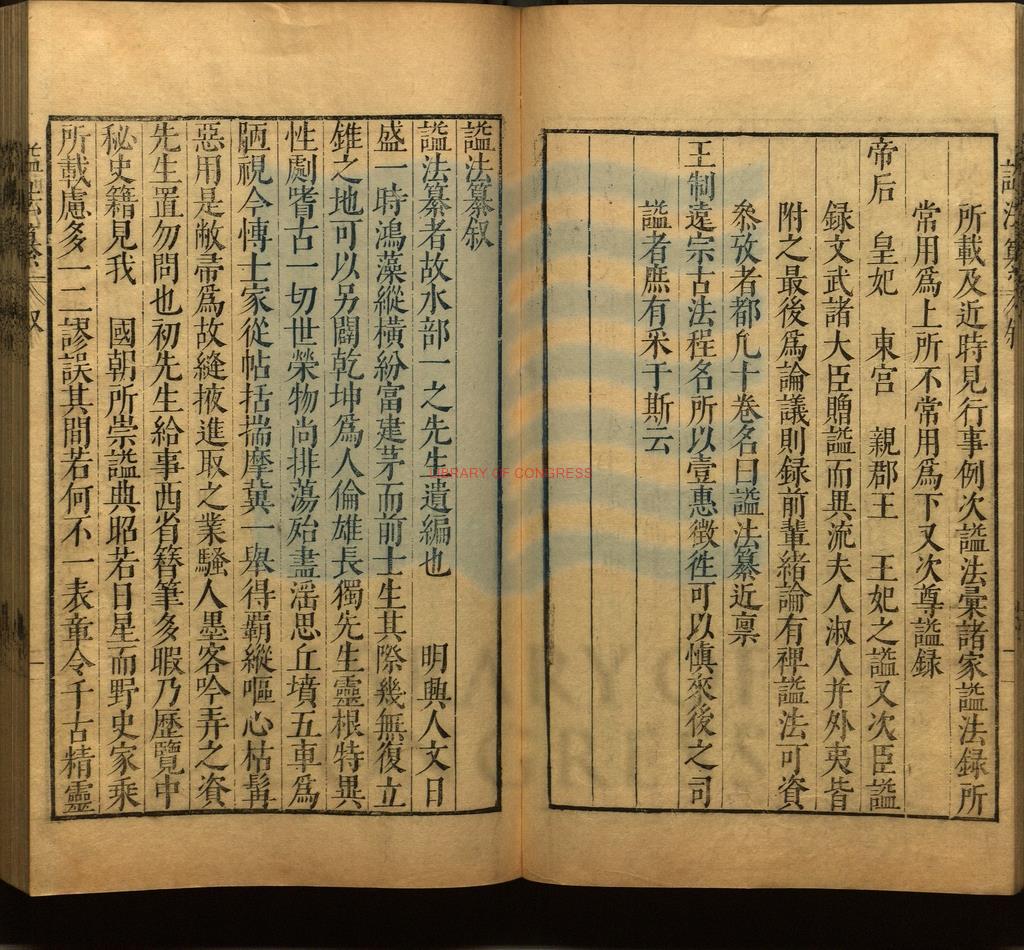 所載及近時見行事例次謚法彚諸家謚法録所
常用爲上所不常用爲下又次尊謚録
帝后 皇妃 東宫 親郡王 王妃之謚又次臣謚
録文武諸大臣贈謚而異流夫人淑人并外夷皆
附之最後爲論議則録前輩緒論有裨謚法可資
叅攷者都凢十卷名曰謚法纂近禀
王制遠宗古法程名所以壹惠徵徃可以慎來後之司
謚者庶有采于斯云
謚法纂叙
謚法纂者故水部一之先生遺編也 明興人文日
盛一時鴻藻縱横紛富建茅而前士生其際幾無復立
錐之地可以另闢乾坤爲人倫雄長獨先生靈根特異
性劇嗜古一切世榮物尚排蕩殆盡滛思丘墳五車爲
陋視今慱士家從帖括揣摩冀一舉得覇縱嘔心枯髯
惡用是敝帚爲故縫掖進取之業騷人墨客吟弄之資
先生置勿問也初先生給事西省簮筆多暇乃歷覽中
秘史籍見我 國朝所崇謚典昭若日星而野史家乘
所載慮多一二謬誤其間若何不一表章令千古精靈
LIBRARY OF CONGRESS